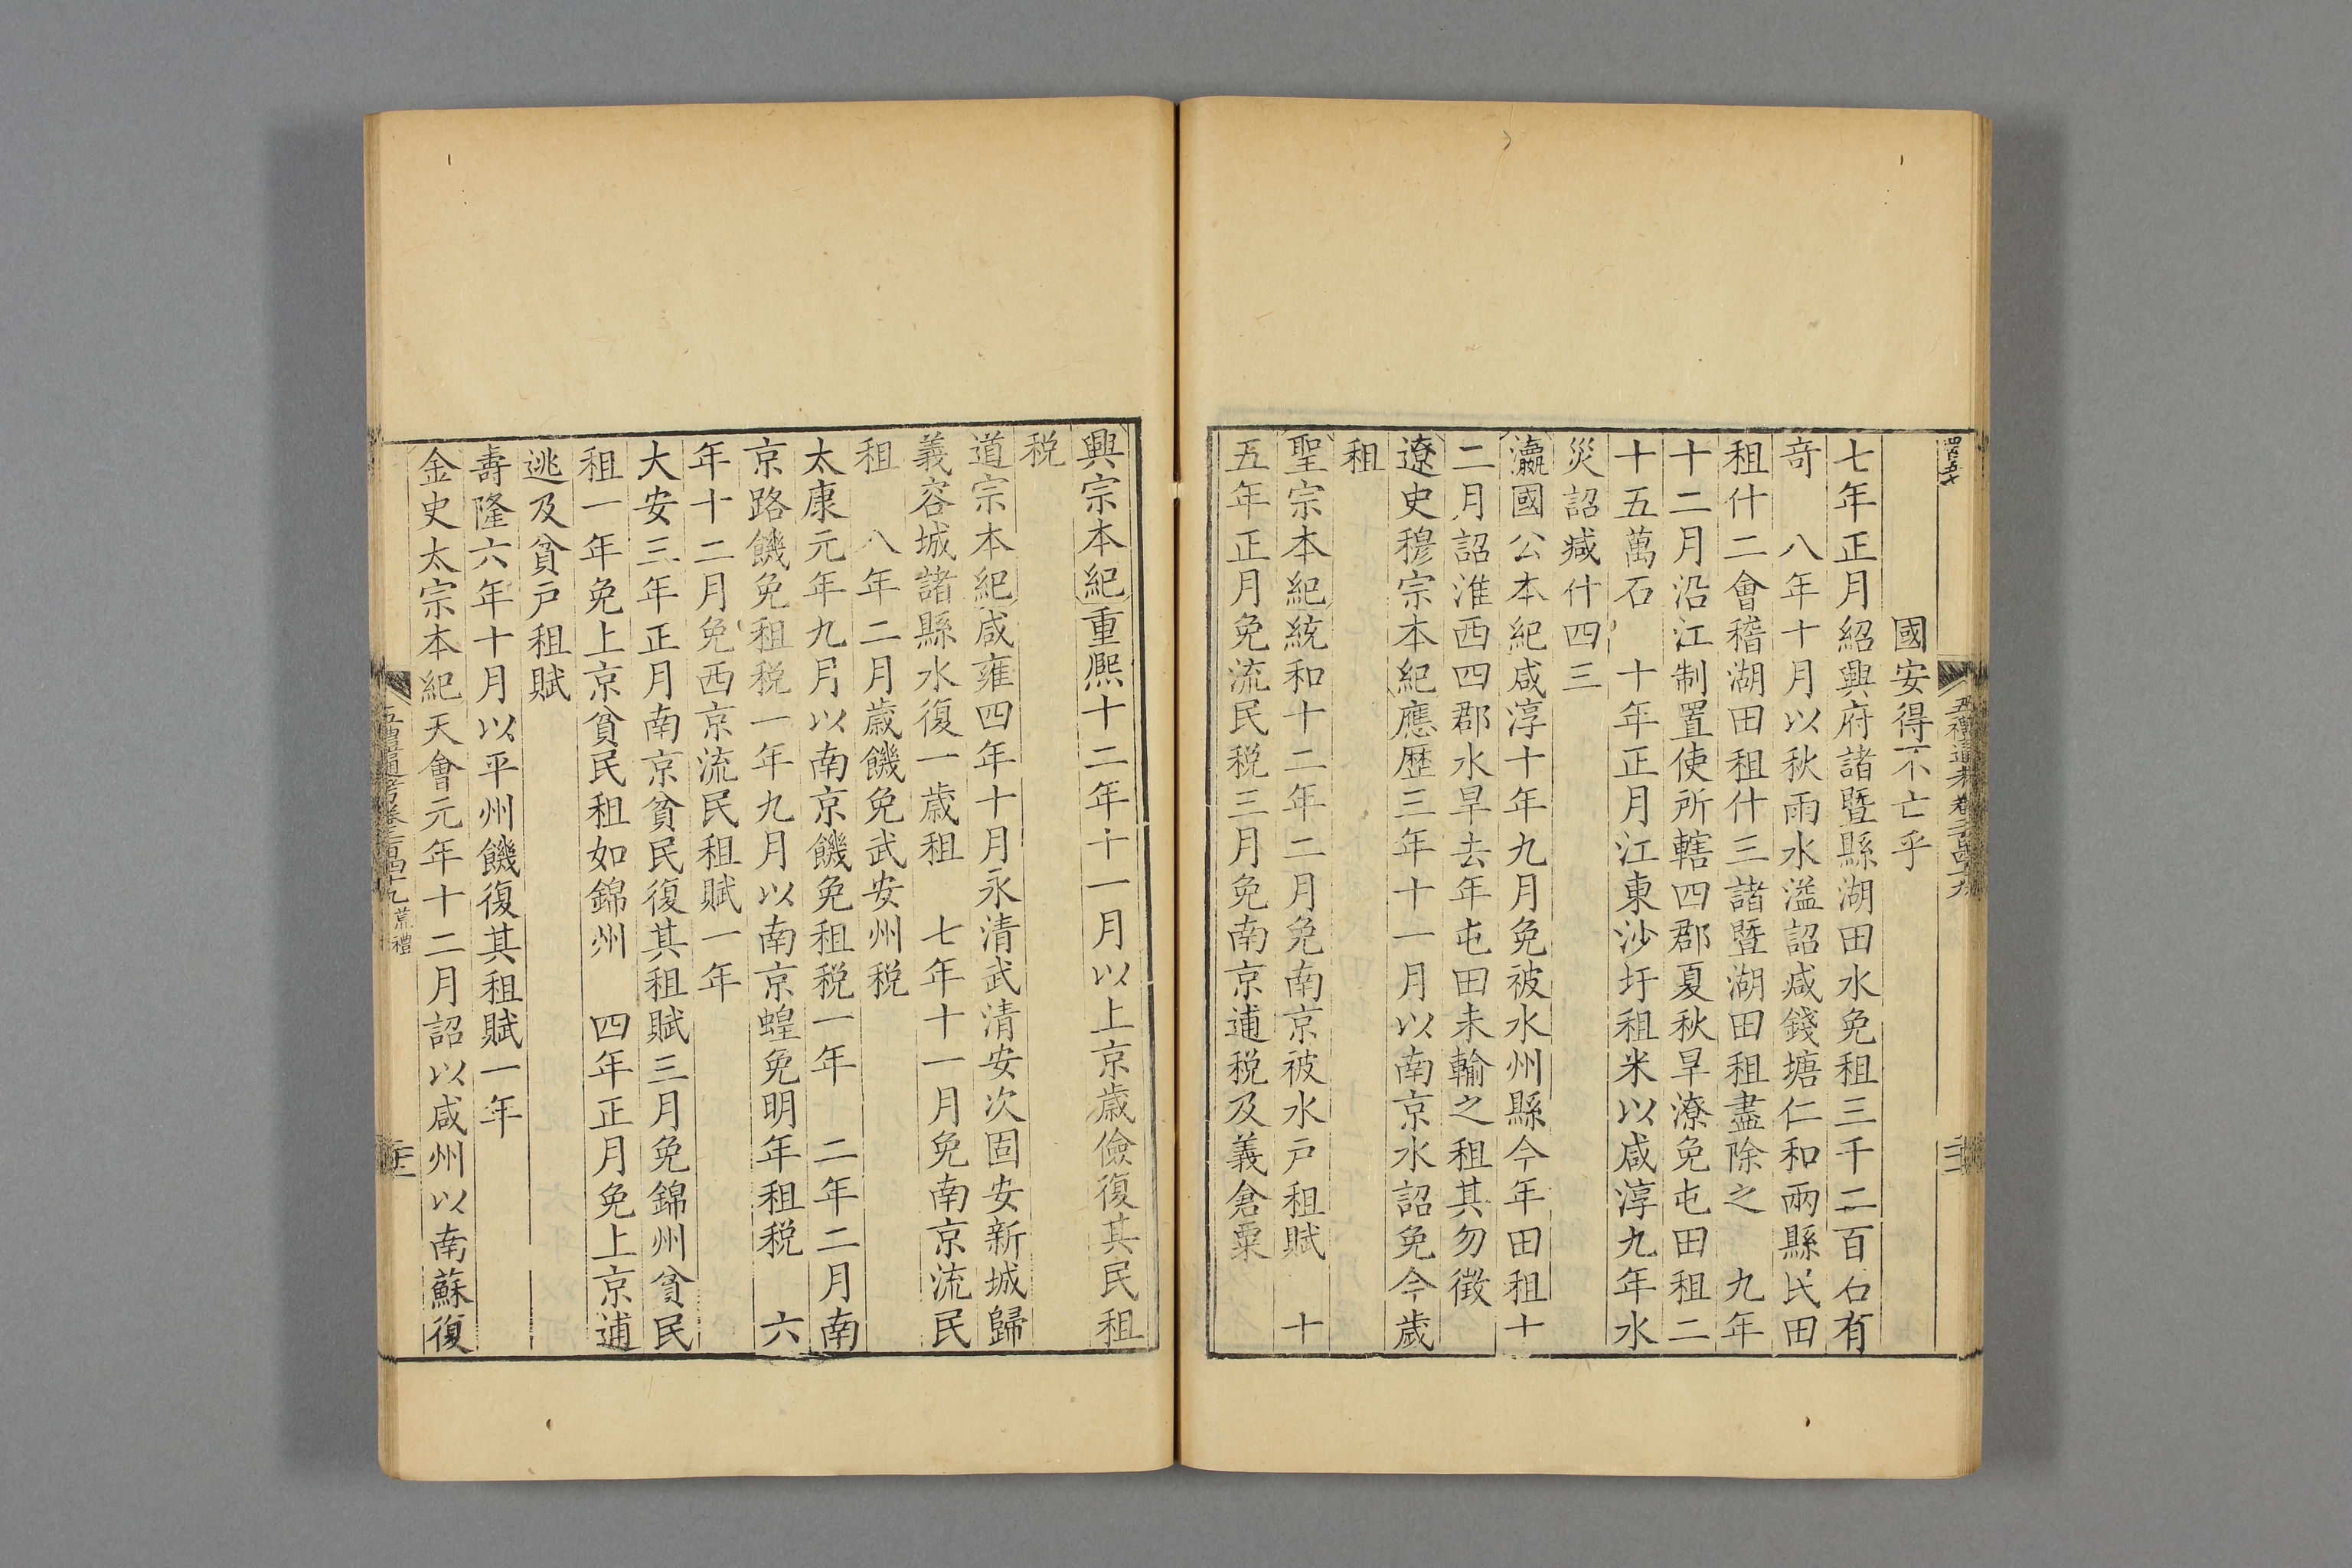 五禮通考卷二百四十九
國安得不亡乎
七年正月紹興府諸暨縣湖田水免租三千二百石有
奇　八年十月以秋雨水溢詔减錢塘仁和兩縣民田
租什二會稽湖田租什三諸暨湖田租盡除之　九年
十二月沿江制置使所轄四郡夏秋旱潦免屯田租二
十五萬石　十年正月江東沙圩租米以咸淳九年水
災詔减什四三
瀛國公本紀咸淳十年九月免被水州縣今年田租十
二月詔淮西四郡水旱去年屯田未輸之租其勿徴
遼史穆宗本紀應歷三年十一月以南京水詔免今歲
租
聖宗本紀統和十二年二月免南京被水戸租賦　十
五年正月免流民税三月免南京逋税及義倉粟
興宗本紀重熈十二年十一月以上京歲儉復其民租
税
道宗本紀咸雍四年十月永清武清安次固安新城歸
義容城諸縣水復一歲租　七年十一月免南京流民
租　八年二月歲饑免武安州税
太康元年九月以南京饑免租税一年　二年二月南
京路饑免租税一年九月以南京蝗免明年租税　六
年十二月免西京流民租賦一年
大安三年正月南京貧民復其租賦三月免錦州貧民
租一年免上京貧民租如錦州　四年正月免上京逋
逃及貧戸租賦
壽隆六年十月以平州饑復其租賦一年
金史太宗本紀天會元年十二月詔以咸州以南蘇復
五禮通考卷二百四十九 荒禮